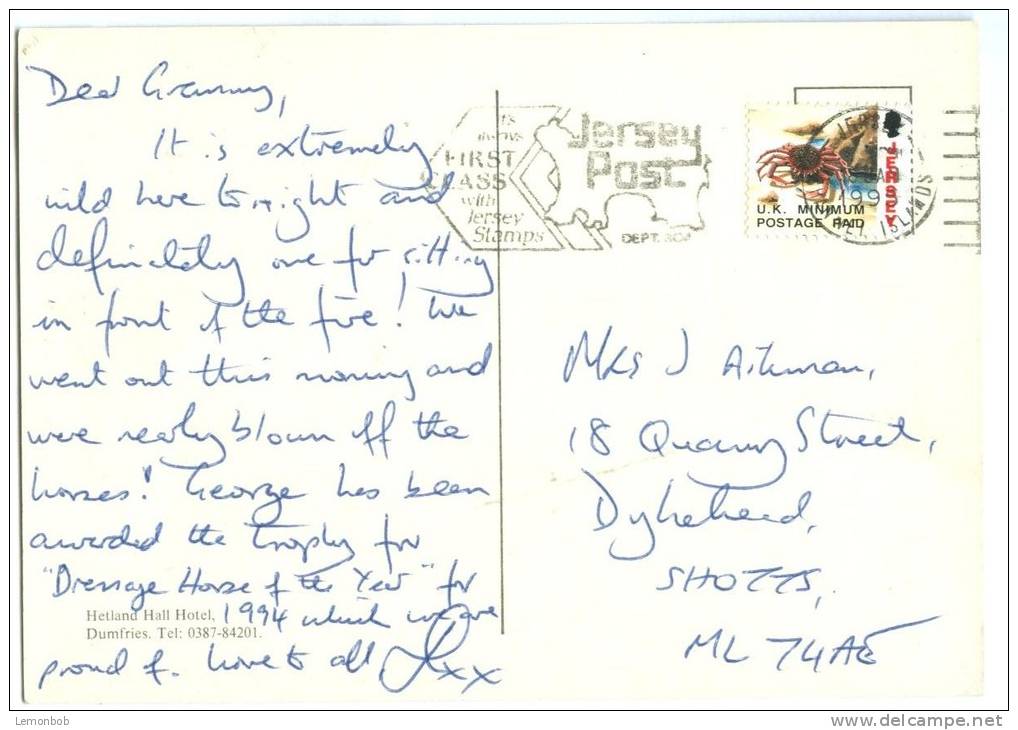 Dear Granny,
It is extremely
wild here tonight and
definitely one for sitting
in front of the fire! We
went out this morning and
were nearly blown off the
horses! George has been
awarded the trophy for
"Dressage Horse of the Year" for
1994 which we are
proud of. Love to all
xx
Hetland Hall Hotel,
Dumfries. Tel: 0387-84201.
It's
always
FIRST
CLASS
with
Jersey
Stamps
Jersey
Post
DEPT.
JERSEY
U.K. MINIMUM
POSTAGE PAID
JERSEY
199
ISLANDS
MRS J Aitman,
18 Quarry Street,
Dykehead,
SHOTTS,
ML 74AE
Lemonbob
www.delcampe.net